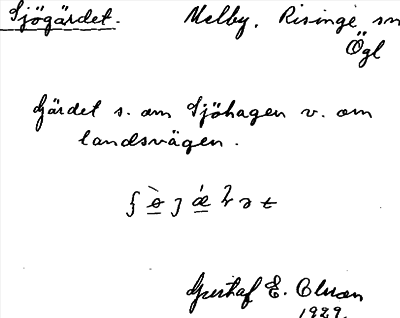 Sjögärdet. Melby, Risinge sn
Ögl
Gärdet s. om Sjöhagen v. om
landsvägen.
Gustaf E. Olsson
1929.